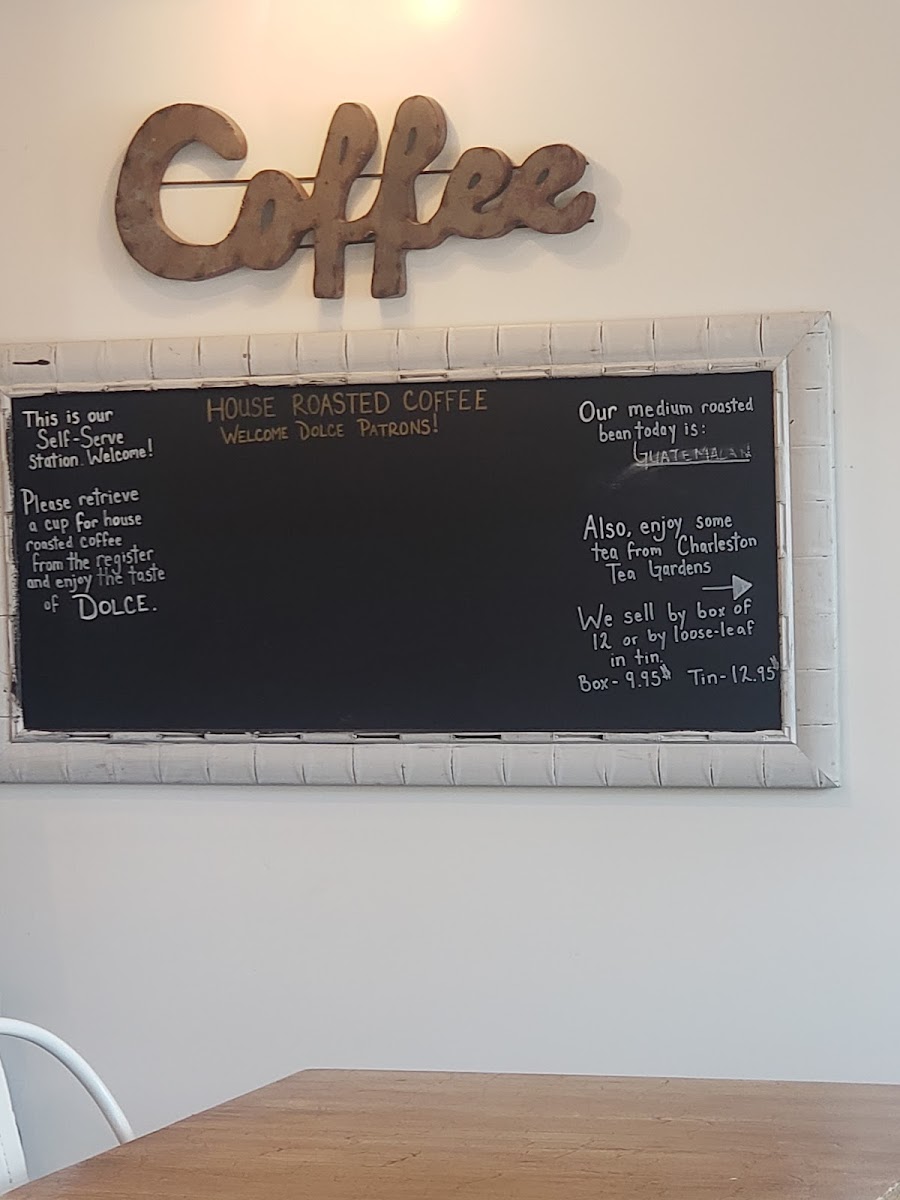 Coffee
This is our
Self-Serve
Station. Welcome!
Please retrieve
a cup for house
roasted coffee
from the register
and enjoy the taste
of DOLCE.
HOUSE ROASTED COFFEE
WELCOME DOLCE PATRONS!
Our medium roasted
bean today is:
GUATEMALAN
Also, enjoy some
tea from Charleston
Tea Gardens
We sell by box of
12 or by loose-leaf
in tin.
Box - 9.95 Tin - 12.95